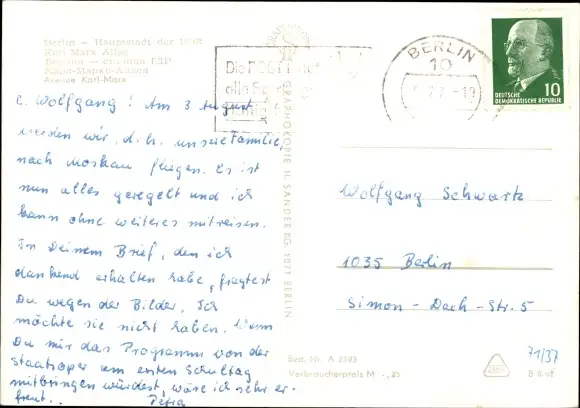 Berlin – Hauptstadt der DDR
Karl Marx Allee
Берлин – столица ГДР
Карл-Маркс-Аллее
Avenue Karl-Marx
L. Wolfgang! Am 3. August
werden wir, d. h. unsere Familie,
nach Moskau fliegen. Es ist
nun alles geregelt und ich
kann ohne weiteres mitreisen.
In Deinem Brief, den ich
dankend erhalten habe, fragtest
Du wegen der Bilder. Ich
möchte sie nicht haben. Wenn
Du mir das Programm von der
Staatsoper am ersten Schultag
mitbringen würdest, wäre ich sehr er-
freut.. Petra
GRAPHOKOPIE H. SANDER KG, 1071 BERLIN
Die POST
BERLIN
10
10
DEUTSCHE
DEMOKRATISCHE REPUBLIK
Wolfgang Schwartz
1035 Berlin
Simon-Dach-Str. 5
Best. Nr. A 2593
Verbraucherpreis M -,25
71/37